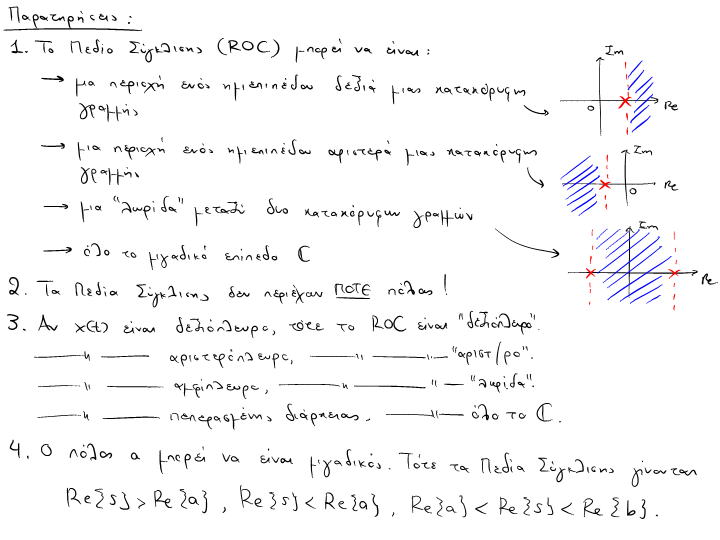 Παρατηρήσεις :
1. Το Πεδίο Σύγκλισης (ROC) μπορεί να είναι :
→ μια περιοχή ενός ημιεπιπέδου δεξιά μιας κατακόρυφης
γραμμής
→ μια περιοχή ενός ημιεπιπέδου αριστερά μιας κατακόρυφης
γραμμής
→ μια "λωρίδα" μεταξύ δυο κατακόρυφων γραμμών
→ όλο το μιγαδικό επίπεδο ℂ
Im
0
Re
Im
0
Re
Im
Re
2. Τα Πεδία Σύγκλισης δεν περιέχουν ΠΟΤΕ πόλους !
3. Αν x(t) είναι δεξιόπλευρο, τότε το ROC είναι "δεξιόπλευρο".
—— " —— αριστερόπλευρο, —— " —— " — "αριστ/ρο".
—— " —— αμφίπλευρο, —— " —— " — "λωρίδα".
—— " —— πεπερασμένης διάρκειας, —— " — όλο το ℂ.
4. Ο πόλος a μπορεί να είναι μιγαδικός. Τότε τα Πεδία Σύγκλισης γίνονται
Re{s} > Re{a} , Re{s} < Re{a} , Re{a} < Re{s} < Re{b} .